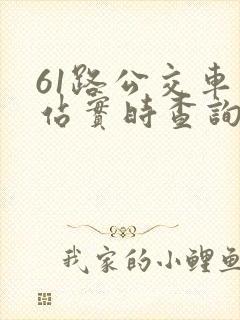 61路公交車
佔實時查詢
我家的小鯉魚